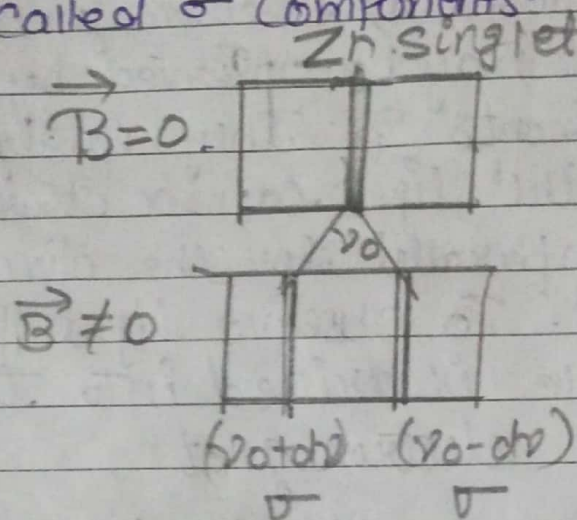 called σ components
Zn singlet
B⃗=0.
ν0
B⃗≠0
(ν0+dν) (ν0-dν)
σ σ